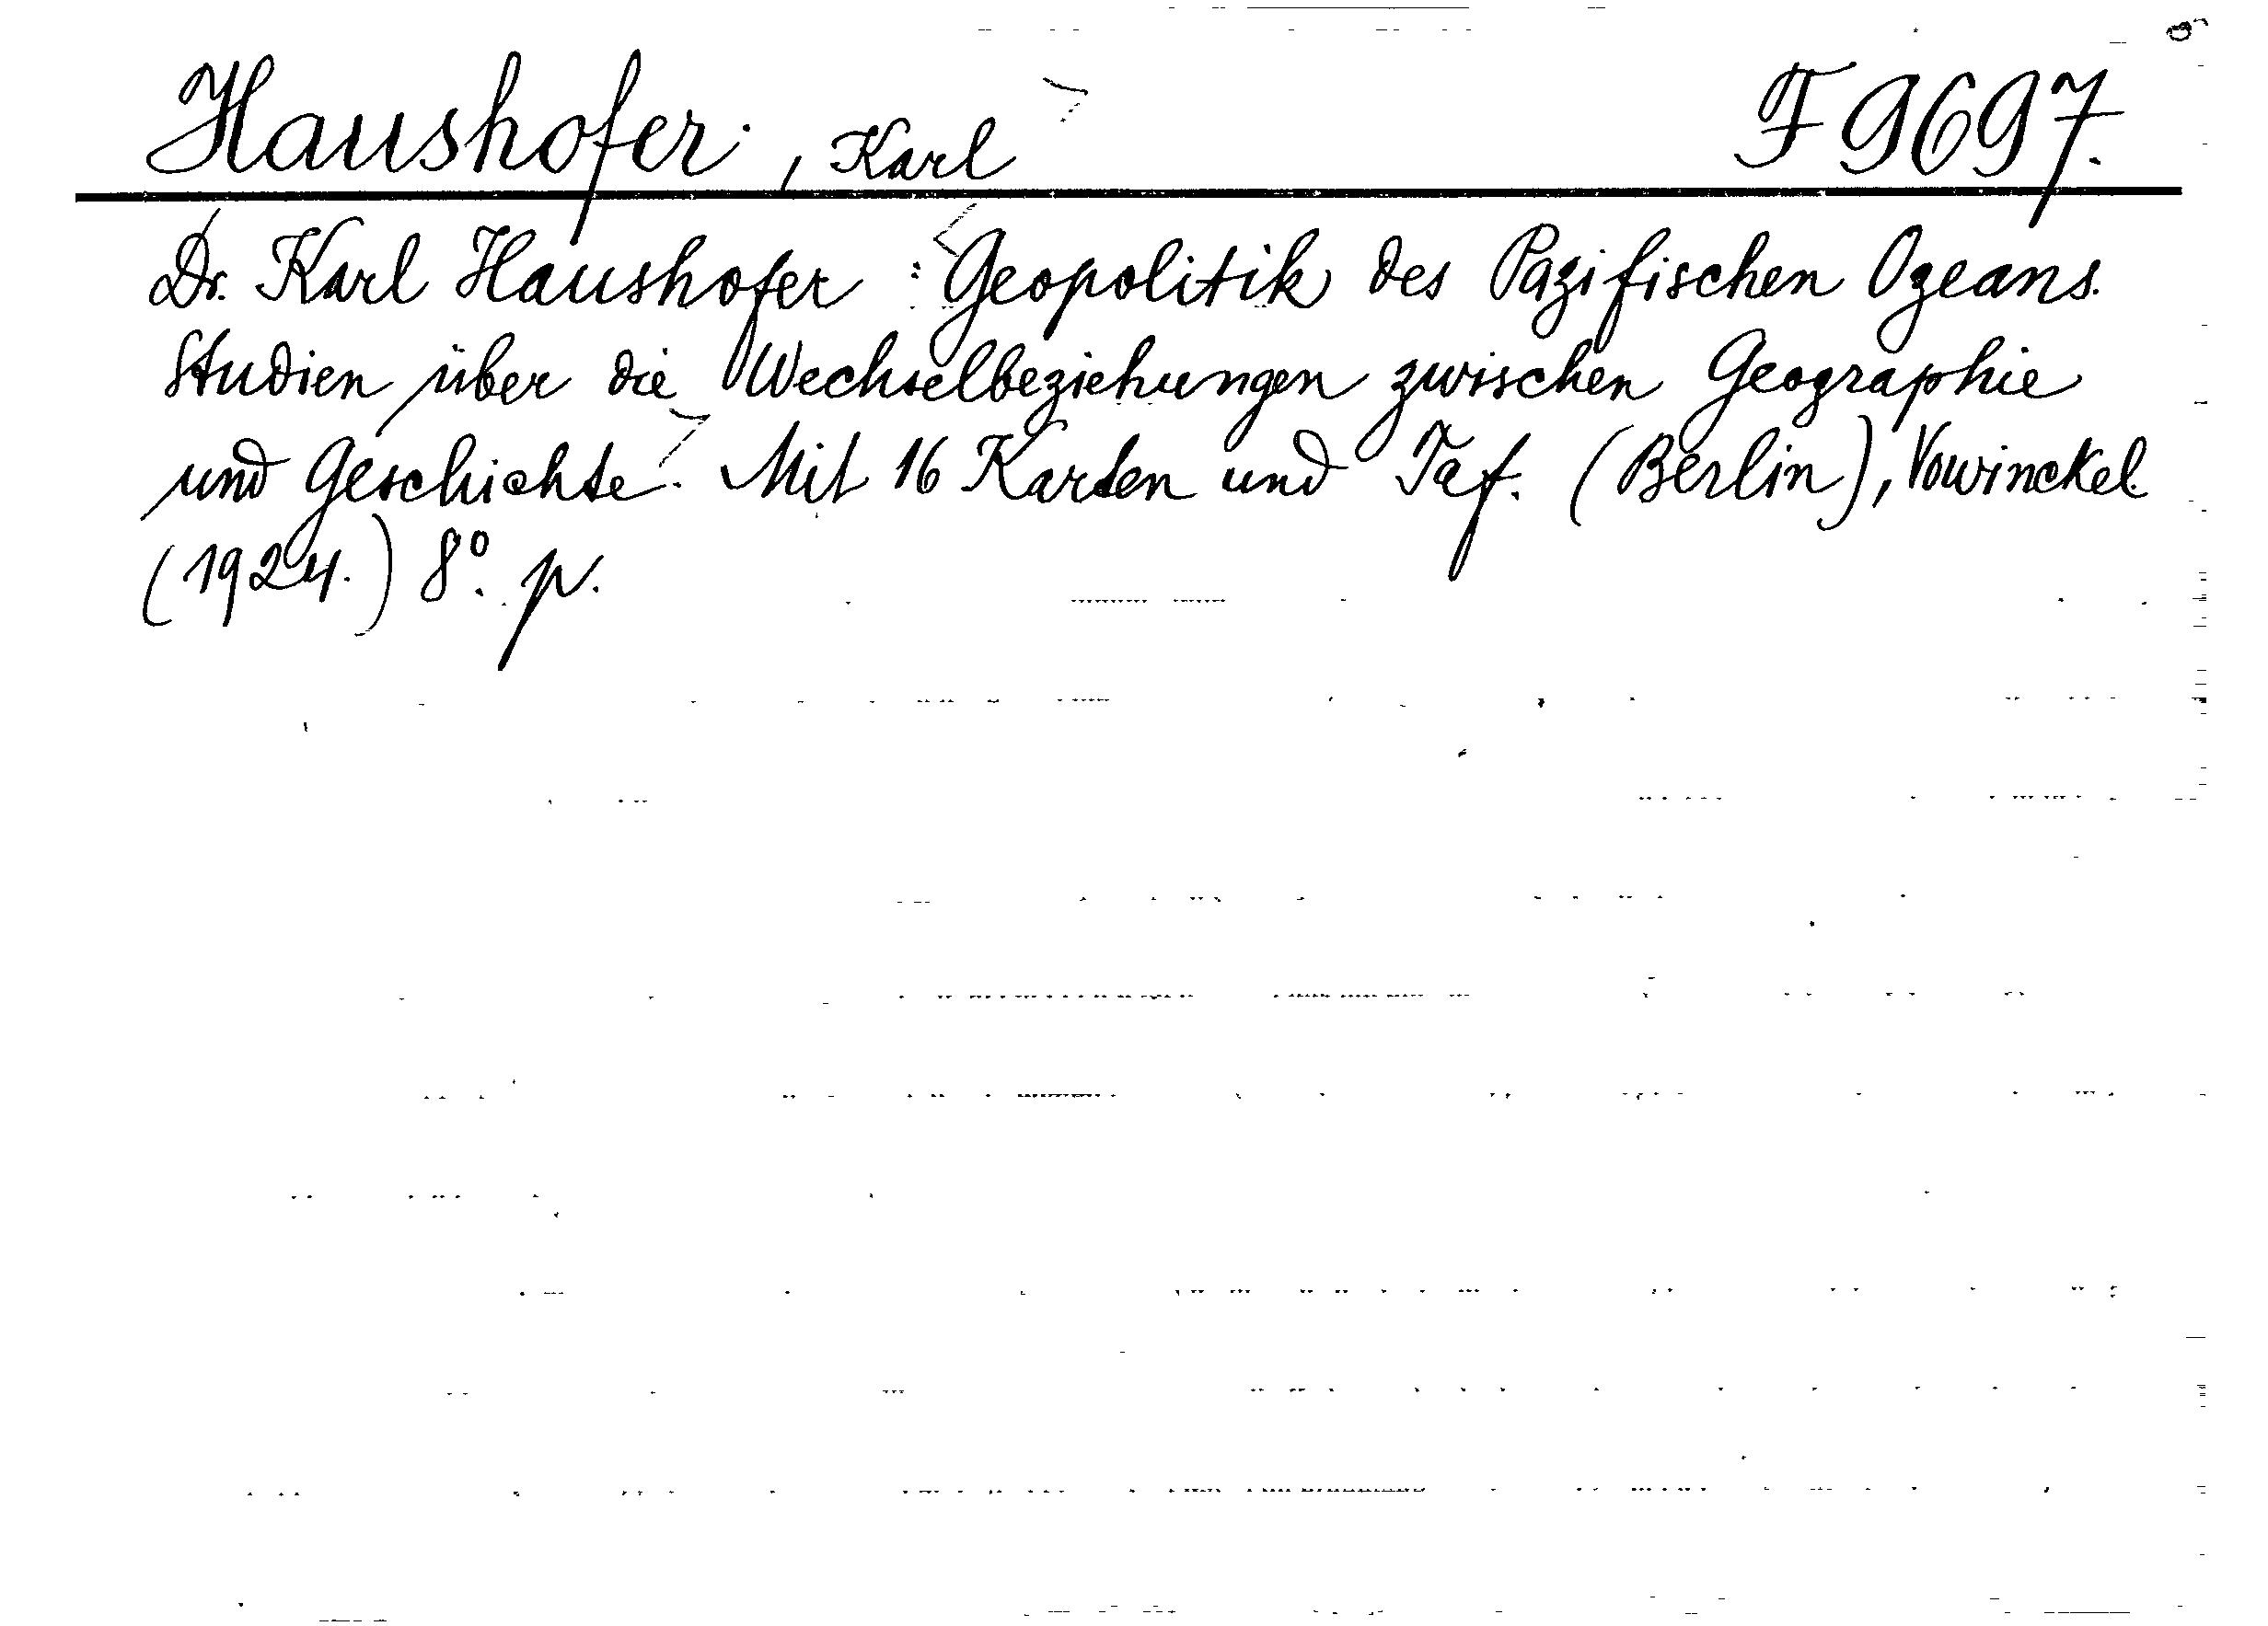 Haushofer, Karl F 9697.
Dr. Karl Haushofer: Geopolitik des Pazifischen Ozeans.
Studien über die Wechselbeziehungen zwischen Geographie
und Geschichte. Mit 16 Karten und Taf. (Berlin), Vowinckel.
(1924.) 8º. p.